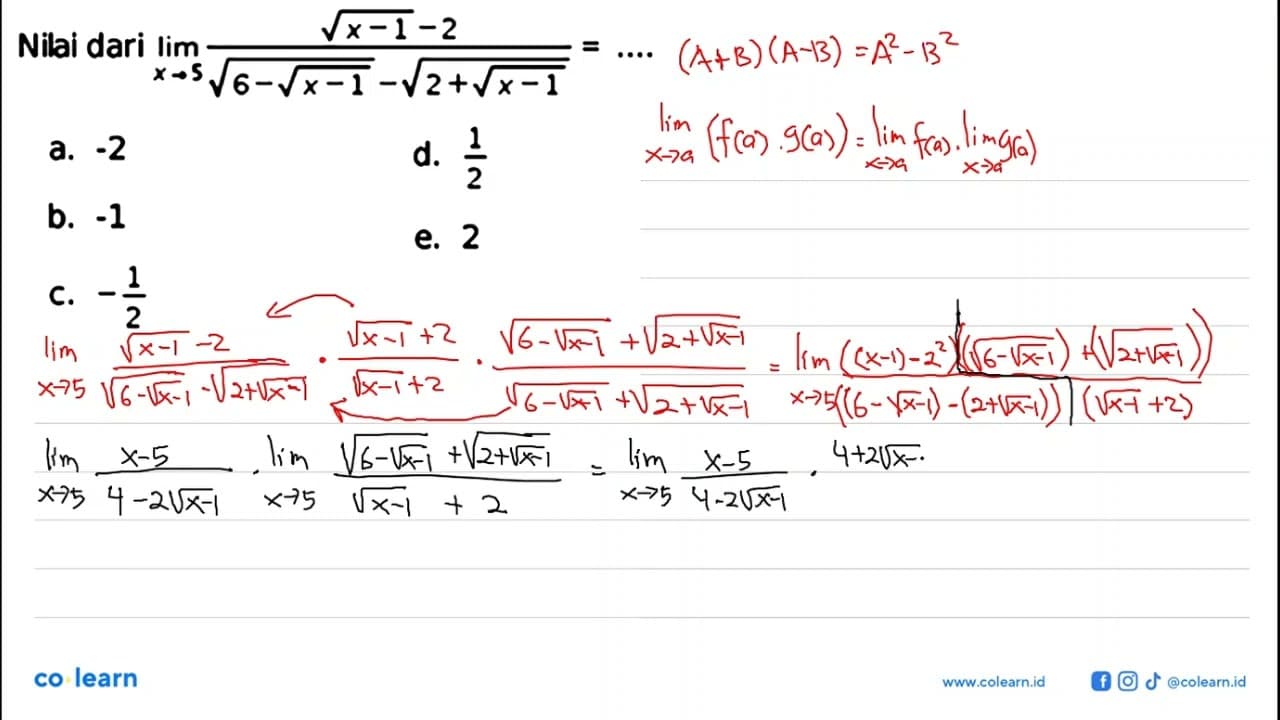 Nilai dari lim x→5 (√(x-1) - 2)/(√(6-√(x-1)) - √(2+√(x-1))) = ....
(A+B)(A-B) = A² - B²
lim x→a (f(a) . g(a)) = lim x→a f(a) . lim x→a g(a)
a. -2
d. 1/2
b. -1
e. 2
c. -1/2
lim x→5 (√(x-1) - 2)/(√(6-√(x-1)) - √(2+√(x-1))) . (√(x-1) + 2)/(√(x-1) + 2) . (√(6-√(x-1)) + √(2+√(x-1)))/(√(6-√(x-1)) + √(2+√(x-1))) = lim x→5 ((x-1) - 2²)((√(6-√(x-1))) + (√(2+√(x-1))))/((6-√(x-1)) - (2+√(x-1))) (√(x-1) + 2)
lim x→5 (x-5)/(4-2√(x-1)) . lim x→5 (√(6-√(x-1)) + √(2+√(x-1)))/(√(x-1) + 2) = lim x→5 (x-5)/(4-2√(x-1)) . 4+2√x-
co learn
www.colearn.id
@colearn.id